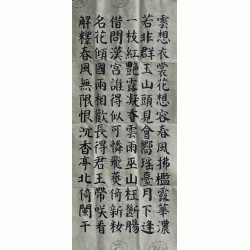 雲想衣裳花想容春風拂檻露華濃
若非群玉山頭見會嚮瑤臺月下逢
一枝紅艷露凝香雲雨巫山枉斷腸
借問漢宮誰得似可憐飛燕倚新妝
名花傾國兩相歡長得君王帶咲看
解釋春風無限恨沉香亭北倚闌干